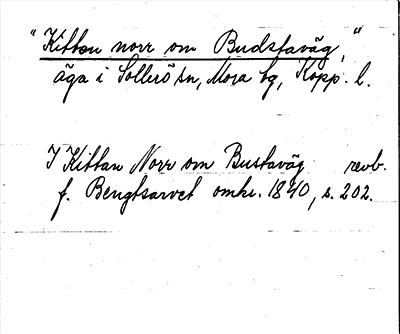 "Kittan norr om Budstaväg,"
äga i Sollerö sn, Mora tg, Kopp. l.
I Kittan Norr om Bustaväg revb.
f. Bengtsarvet omkr. 1840, s. 202.